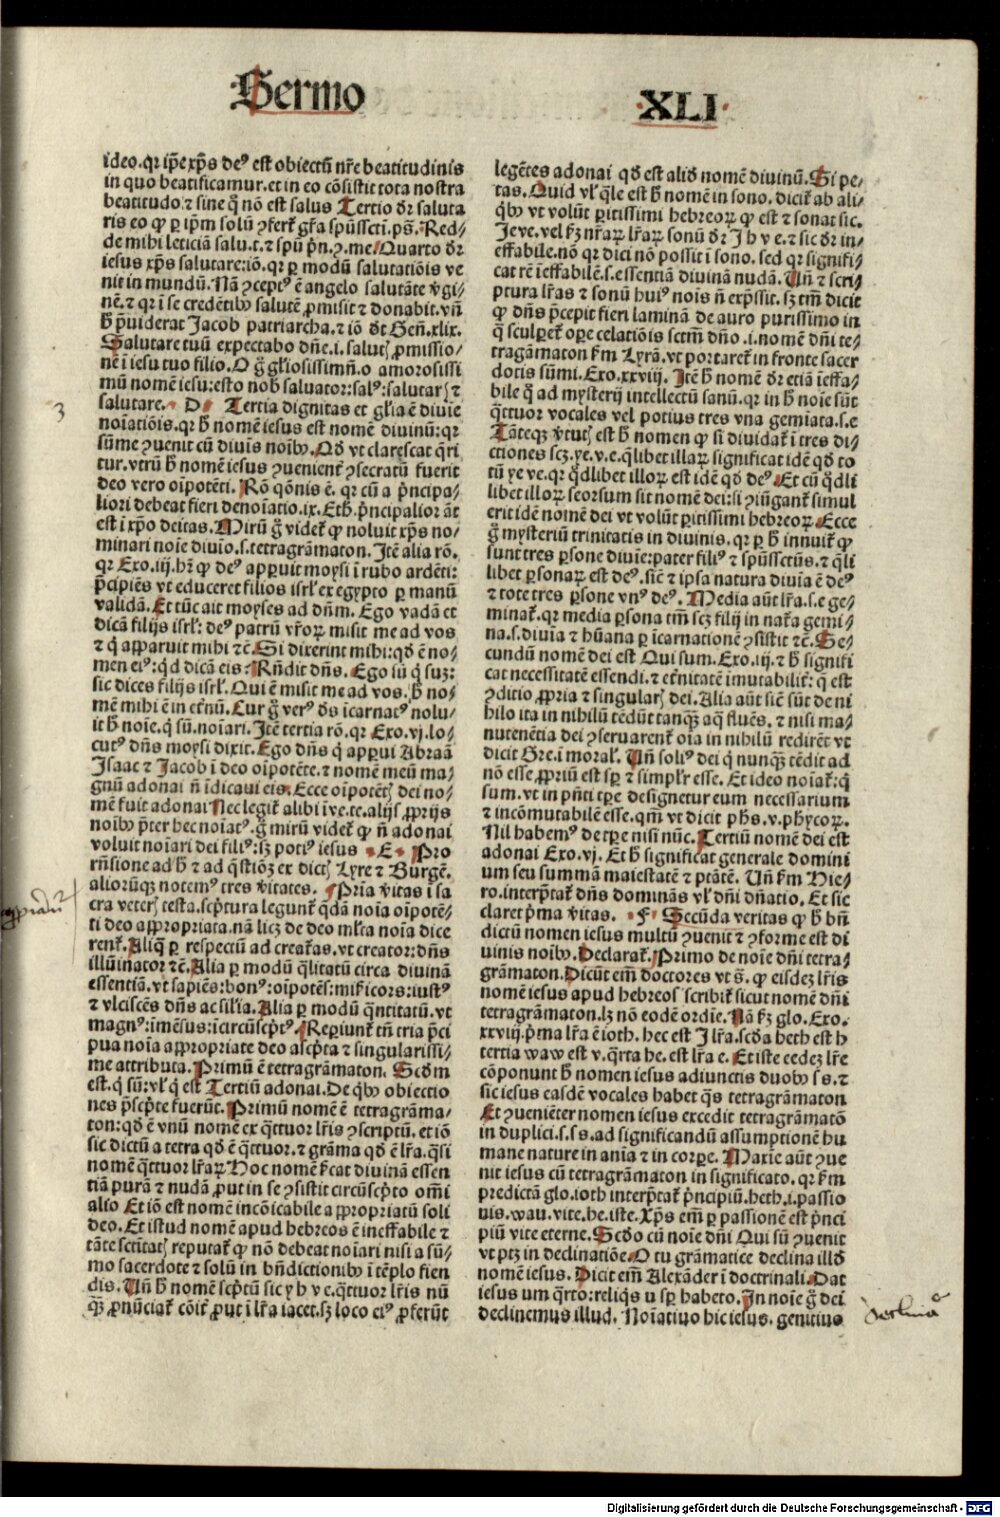 Sermo
XLI
ideo. qr ip̄e xp̄s deꝰ est obiectū nr̄e beatitudinis
in quo beatificamur. et in eo cōsistit tota nostra
beatitudo. ⁊ sine q̄ nō est salus Tertio dr̄ saluta
ris eo ꝙ ꝑ ip̄m solū ꝯfert᷑ gr̄a spūsscti. ps̄. Red/
de mihi leticiā salu. t. ⁊ spū p̄n. ꝯ. me Quarto dr̄
iesus xp̄s salutare: iō. qr ꝑ modū salutatiōis ve
nit in mundū. Nā ꝯceptꝰ ē angelo salutāte v̄gi/
nē. ⁊ qr ī se credētibꝰ salutē ꝓmisit ⁊ donabit. vn̄
h̄ p̄uiderat Jacob patriarcha. ⁊ iō dt Gen̄. xlix.
Salutare tuū expectabo dn̄e. i. salut᷑ ꝓmissio/
nē ī iesu tuo filio. O g̊ gl̄iosissimū. o amorosissi
mū nomē iesu: esto nob᷑ saluator: salꝰ: salutar᷑ ⁊
salutare. D Tertia dignitas et gl̄ia ē diuīe
noīatiōis. qr h̄ nomē iesus est nomē diuinū: qr
sūme ꝯuenit cū diuīs noībꝰ. Qd̄ vt clarescat q̄ri
tur. vtrū h̄ nomē iesus ꝯuenient᷑ ꝯsecratū fuerit
deo vero oīpotēti. Rō qōnis ē. qr cū a p̄ncipa/
liori debeat fieri denoīatio. ix. Eth̄. p̄ncipalior āt
est ī xp̄o deitas. Mirū g̊ videt᷑ ꝙ noluit xp̄s no/
minari noīe diuīo. s. tetragrāmaton. Itē alia rō.
qr Exo. iij. hr̄ ꝙ deꝰ apꝑuit moysi ī rubo ardēti:
p̄cipiēs vt educeret filios isrl̄ ex egypto ꝑ manū
validā. Et tūc ait moyses ad dn̄m. Ego vadā et
dicā filijs isrl̄: deꝰ patrū vr̄oꝝ misit me ad vos
⁊ q̇ apparuit mihi ⁊c̄. Si dixerint mihi: qd̄ ē no/
men eiꝰ: qd̄ dicā eis: Rn̄dit dn̄s. Ego sū q̇ suꝫ:
sic dices filijs isrl̄. Qui ē misit me ad vos. h̄ no/
mē mihi ē in et̄nū. Cur g̊ verꝰ ds̄ īcarnatꝰ nolu/
it h̄ noīe. q̇ sū. noīari. Itē tertia rō. qr Exo. vj. lo/
cutꝰ dn̄s moysi dixit. Ego dn̄s q̇ apꝑui Abraā
Isaac ⁊ Jacob ī deo oīpotēte. ⁊ nomē meū ma/
gnū adonai n̄ īdicaui eis. Ecce oīpotēt᷑ dei no/
mē fuit adonai Nec legit᷑ alibi ī ve. te. alijs ꝓprijs
noībꝰ p̄ter hec noīatꝰ. g̊ mirū videt᷑ ꝙ n̄ adonai
voluit noīari dei filiꝰ: sꝫ potiꝰ iesus E Pro
rn̄sione ad h̄ ⁊ ad q̄stiōꝫ ex dict᷑ Lyre ⁊ Burgē.
aliorūqꝫ notemꝰ tres v̄itates. Pria v̄itas ī sa
cra veter᷑ testa. sc̄ptura legunt᷑ q̄dā noīa oīpotē/
ti deo apꝓpriata. nā licꝫ de deo ml̄ta noīa dice
rent᷑. Aliq̄ ꝑ respectū ad creat᷑as. vt creator: dn̄s
illūinator ⁊c̄. Alia ꝑ modū q̄litatū circa diuinā
essentiā. vt sapiēs: bonꝰ: oīpotēs: mīficors: iustꝰ
⁊ vlciscēs dn̄s ac silīa. Alia ꝑ modū q̄ntitatū. vt
magnꝰ: īmēsus: īcircūsc̄ptꝰ. Reꝑiunt᷑ tn̄ tria p̄ci
pua noīa apꝓpriate deo asc̄pta ⁊ singularissi/
me attributa. Primū ē tetragrāmaton. Scd̄m
est. q̇ sū: vl̄ q̇ est Tertiū adonai. De q̇bꝰ obiectio
nes p̄sc̄pte fuerūt. Primū nomē ē tetragrāma/
ton: qd̄ ē vnū nomē ex q̄ttuor lr̄is ꝯscriptū. et iō
sic dictū a tetra qd̄ ē q̄ttuor. ⁊ grāma qd̄ ē lr̄a. q̄si
nomē q̄ttuor lr̄aꝝ Hoc nomē s̄cat diuinā essen
tiā purā ⁊ nudā ꝓut in se ꝯsistit circūsc̄pto om̄i
alio Et iō est nomē incōicabile apꝓpriatū soli
deo. Et istud nomē apud hebreos ē ineffabile ⁊
tāte sctitat᷑ reputat᷑ ꝙ nō debeat noīari nisi a sū/
mo sacerdote ⁊ solū in bn̄dictionibꝰ ī tēplo fien
dis. Un̄ h̄ nomē sc̄ptū sic y h v e. q̄ttuor lr̄is nū
qꝫ ꝓnūciat᷑ cōit᷑ ꝓut ī lr̄a iacet. sꝫ loco eiꝰ ꝓferūt
legētes adonai qd̄ est aliō nomē diuinū. Si pe/
tas. Quid vl̄ q̄le est h̄ nomē in sono. dicit᷑ ab ali/
q̇bꝰ vt volūt ꝑitissimi hebreoꝝ ꝙ est ⁊ sonat sic.
Jeve. vel ẜꝫ nr̄aꝝ lr̄aꝝ sonū dr̄ J h v e. ⁊ sic dr̄ in/
effabile. nō qr dici nō possit ī sono. sed qr signifi/
cat rē īeffabilē. s. essentiā diuinā nudā. Un̄ ⁊ scri/
ptura lr̄as ⁊ sonū huiꝰ noīs n̄ exp̄ssit. sꝫ tm̄ dicit
ꝙ dn̄s p̄cepit fieri laminā de auro purissimo in
q̄ sculperet᷑ oꝑe celatiōis sctm̄ dn̄o. i. nomē dn̄i te/
tragāmaton ẜm Lyrā. vt portaret᷑ in fronte sacer
dotis sūmi. Exo. xxviij. Itē h̄ nomē dr̄ etiā īeffa/
bile q̄ ad mysterij intellectū sanū. qr in h̄ noīe sūt
q̄ttuor vocales vel potius tres vna gemīata. s. e
Tāteqꝫ v̄tut᷑ est h̄ nomen ꝙ si diuidat᷑ ī tres di/
ctiones scꝫ. ye. v. e. q̄libet illaꝝ significat idē qd̄ to
tū ye ve. qr q̄dlibet illoꝝ est idē qd̄ deꝰ. Et cū q̄dli
libet illoꝝ seorsum sit nomē dei: si ꝯiūgant᷑ simul
erit idē nomē dei vt volūt ꝑitissimi hebreoꝝ. Ecce
g̊ mysteriū trinitatis in diuinis. qr ꝑ h̄ innuit᷑ ꝙ
sunt tres ꝑsone diuīe: pater filiꝰ ⁊ spūssctus. ⁊ q̄li
libet ꝑsonaꝝ est deꝰ. sic ⁊ ipsa natura diuīa ē deꝰ
⁊ tote tres ꝑsone vnꝰ deꝰ. Media aūt lr̄a. s. e ge/
minat᷑. qr media ꝑsona tm̄ scꝫ filij in nat᷑a gemi/
na. s. diuīa ⁊ hūana ꝑ īcarnationē ꝯsistit ⁊c̄. Se/
cundū nomē dei est Qui sum. Exo. iij. ⁊ h̄ signifi
cat necessitatē essendi. ⁊ et̄nitatē īmutabilit᷑: q̄ est
ꝯditio ꝓpria ⁊ singular᷑ dei. Alia aūt sic sūt de ni
hilo ita in nihilū tēdūt tanqꝫ aq̄ fluēs. ⁊ nisi ma/
nutenētia dei ꝯseruarent᷑ oīa in nihilū redirēt vt
dicit Gre. ī moral᷑. Un̄ soliꝰ dei q̇ nunqꝫ tēdit ad
nō esse ꝓpriū est sꝑ ⁊ simpl̄r esse. Et ideo noīat᷑: q̇
sum. vt in pn̄ti tꝑe designetur eum necessarium
⁊ incōmutabilē esse. qm̄ vt dicit ph̄s. v. phycoꝝ.
Nil habemꝰ de tꝑe nisi nūc. Tertiū nomē dei est
adonai Exo. vj. Et h̄ significat generale domini
um seu summā maiestatē ⁊ ptātē. Un̄ ẜm Hie/
ro. interp̄tat᷑ dn̄s dominās vl̄ dn̄i dn̄atio. Et sic
claret p̄ma v̄itas. F Secūda veritas ꝙ h̄ bn̄
dictū nomen iesus multū ꝯuenit ⁊ ꝯforme est di
uinis noībꝰ. Declarat᷑. Primo de noīe dn̄i tetra/
grāmaton. Dicūt em̄ doctores vt s̄. ꝙ eisdeꝫ lr̄is
nomē iesus apud hebreos scribit᷑ sicut nomē dn̄i
tetragrāmaton. lꝫ nō eodē ordīe. Nā ẜꝫ glo. Exo.
xxviij. p̄ma lr̄a ē ioth. hec est J lr̄a. scd̄a heth est h
tertia waw est v. q̄rta he. est lr̄a e. Et iste eedeꝫ lr̄e
cōponunt h̄ nomen iesus adiunctis duobꝰ s s. ⁊
sic iesus easdē vocales habet q̄s tetragrāmaton
Et ꝯueniēter nomen iesus excedit tetragrāmatō
in duplici. s. s. ad significandū assumptionē hu
mane nature in anīa ⁊ in corꝑe. Maxīe aūt ꝯue
nit iesus cū tetragrāmaton in significato. qr ẜm
predictā glo. ioth interp̄tat᷑ p̄ncipiū. heth. i. passio
nis. wau. vite. he. iste. Xp̄s em̄ ꝑ passionē est p̄nci
piū vite eterne. Scd̄o cū noīe dn̄i Qui sū ꝯuenit
vt ptꝫ in declinatiōe. O tu grāmatice declina illd̄
nomē iesus. Dicit em̄ Alexāder ī doctrinali. Dat
iesus um q̄rto: reliq̇s u sꝑ habeto. In noīe g̊ dei
declinemus illud. Noīatiuo hic iesus. genitiuo
3